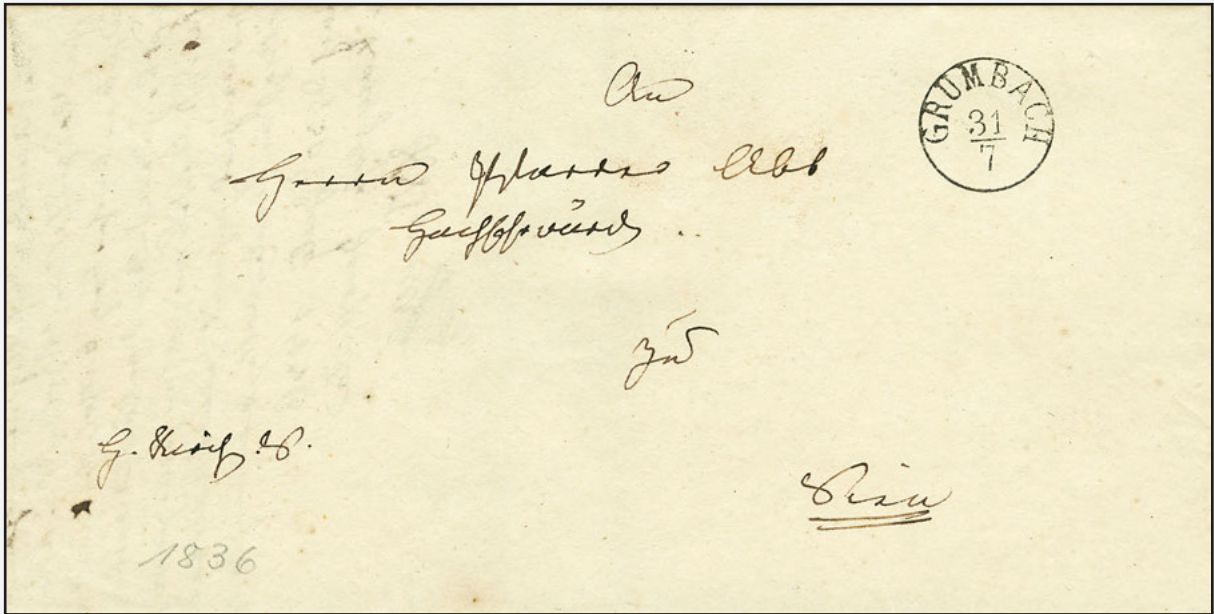 An
GRUMBACH
31
7
Herrn Pfarrer Abb
Hochehrwürd ..
zu
H. Kirch. S.
Sien
1836